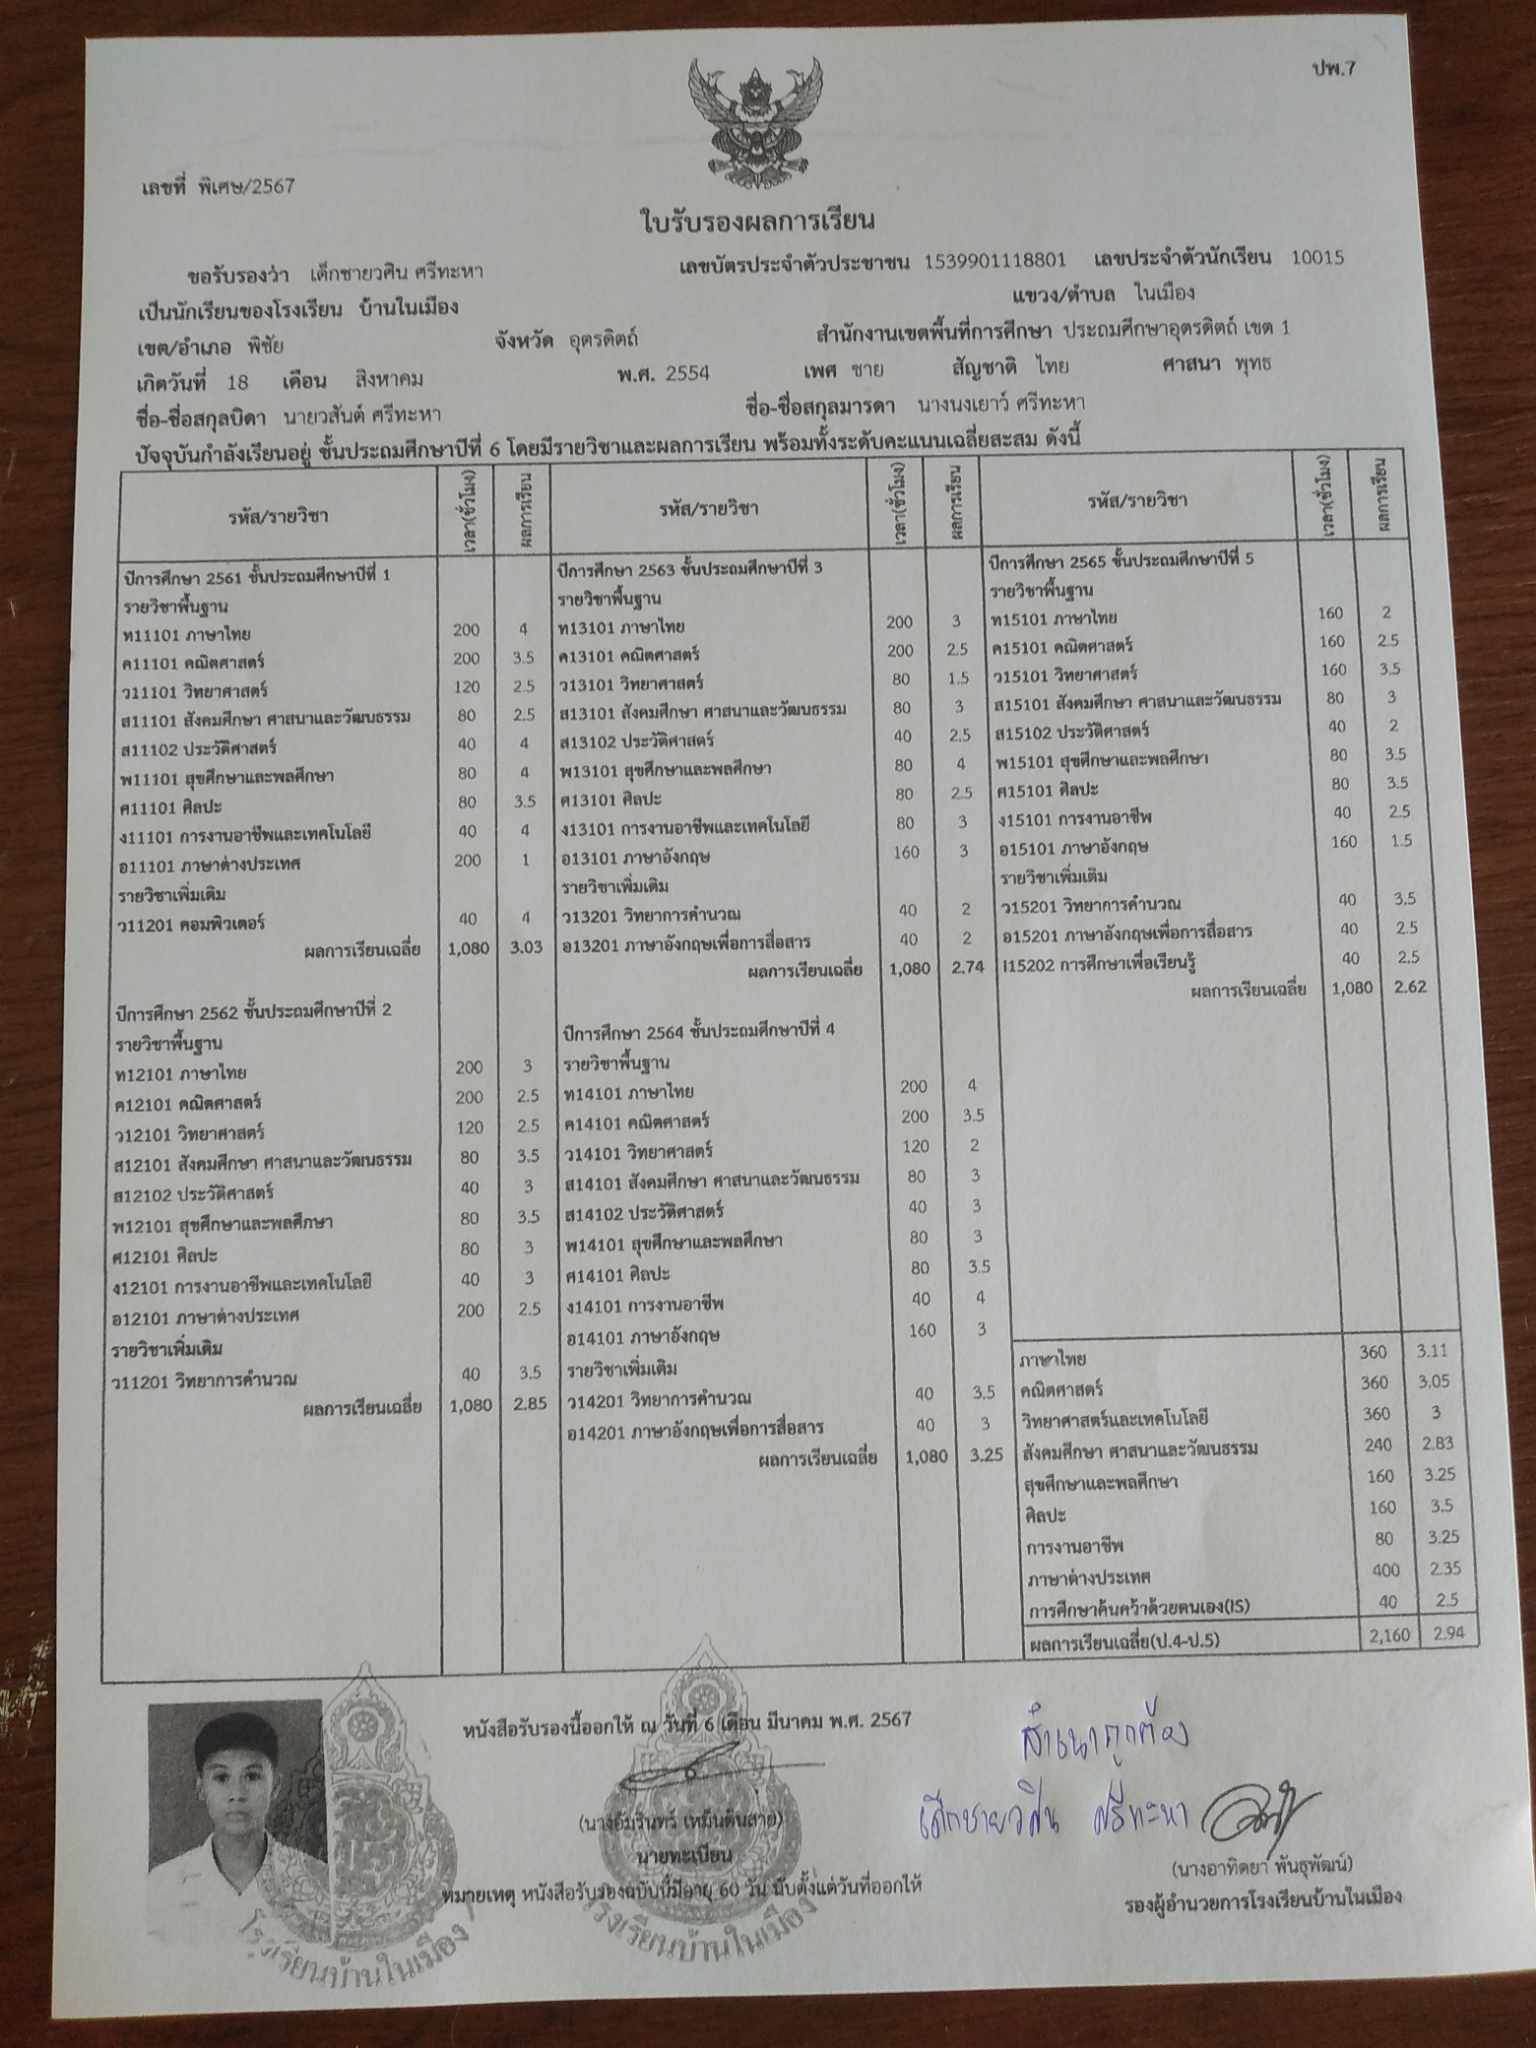 ปพ.7
เลขที่ พิเศษ/2567
ใบรับรองผลการเรียน
ขอรับรองว่า เด็กชายวศิน ศรีทะหา เลขบัตรประจำตัวประชาชน 1539901118801 เลขประจำตัวนักเรียน 10015
เป็นนักเรียนของโรงเรียน บ้านในเมือง แขวง/ตำบล ในเมือง
เขต/อำเภอ พิชัย จังหวัด อุตรดิตถ์ สำนักงานเขตพื้นที่การศึกษา ประถมศึกษาอุตรดิตถ์ เขต 1
เกิดวันที่ 18 เดือน สิงหาคม พ.ศ. 2554 เพศ ชาย สัญชาติ ไทย ศาสนา พุทธ
ชื่อ-ชื่อสกุลบิดา นายวสันต์ ศรีทะหา ชื่อ-ชื่อสกุลมารดา นางนงเยาว์ ศรีทะหา
ปัจจุบันกำลังเรียนอยู่ ชั้นประถมศึกษาปีที่ 6 โดยมีรายวิชาและผลการเรียน พร้อมทั้งระดับคะแนนเฉลี่ยสะสม ดังนี้
รหัส/รายวิชา เวลา(ชั่วโมง) ผลการเรียน
ปีการศึกษา 2561 ชั้นประถมศึกษาปีที่ 1
รายวิชาพื้นฐาน
ท11101 ภาษาไทย 200 4
ค11101 คณิตศาสตร์ 200 3.5
ว11101 วิทยาศาสตร์ 120 2.5
ส11101 สังคมศึกษา ศาสนาและวัฒนธรรม 80 2.5
ส11102 ประวัติศาสตร์ 40 4
พ11101 สุขศึกษาและพลศึกษา 80 4
ศ11101 ศิลปะ 80 3.5
ง11101 การงานอาชีพและเทคโนโลยี 40 4
อ11101 ภาษาต่างประเทศ 200 1
รายวิชาเพิ่มเติม
ว11201 คอมพิวเตอร์ 40 4
ผลการเรียนเฉลี่ย 1,080 3.03
ปีการศึกษา 2562 ชั้นประถมศึกษาปีที่ 2
รายวิชาพื้นฐาน
ท12101 ภาษาไทย 200 3
ค12101 คณิตศาสตร์ 200 2.5
ว12101 วิทยาศาสตร์ 120 2.5
ส12101 สังคมศึกษา ศาสนาและวัฒนธรรม 80 3.5
ส12102 ประวัติศาสตร์ 40 3
พ12101 สุขศึกษาและพลศึกษา 80 3.5
ศ12101 ศิลปะ 80 3
ง12101 การงานอาชีพและเทคโนโลยี 40 3
อ12101 ภาษาต่างประเทศ 200 2.5
รายวิชาเพิ่มเติม
ว11201 วิทยาการคำนวณ 40 3.5
ผลการเรียนเฉลี่ย 1,080 2.85
รหัส/รายวิชา เวลา(ชั่วโมง) ผลการเรียน
ปีการศึกษา 2563 ชั้นประถมศึกษาปีที่ 3
รายวิชาพื้นฐาน
ท13101 ภาษาไทย 200 3
ค13101 คณิตศาสตร์ 200 2.5
ว13101 วิทยาศาสตร์ 80 1.5
ส13101 สังคมศึกษา ศาสนาและวัฒนธรรม 80 3
ส13102 ประวัติศาสตร์ 40 2.5
พ13101 สุขศึกษาและพลศึกษา 80 4
ศ13101 ศิลปะ 80 2.5
ง13101 การงานอาชีพและเทคโนโลยี 80 3
อ13101 ภาษาอังกฤษ 160 3
รายวิชาเพิ่มเติม
ว13201 วิทยาการคำนวณ 40 2
อ13201 ภาษาอังกฤษเพื่อการสื่อสาร 40 2
ผลการเรียนเฉลี่ย 1,080 2.74
ปีการศึกษา 2564 ชั้นประถมศึกษาปีที่ 4
รายวิชาพื้นฐาน
ท14101 ภาษาไทย 200 4
ค14101 คณิตศาสตร์ 200 3.5
ว14101 วิทยาศาสตร์ 120 2
ส14101 สังคมศึกษา ศาสนาและวัฒนธรรม 80 3
ส14102 ประวัติศาสตร์ 40 3
พ14101 สุขศึกษาและพลศึกษา 80 3
ศ14101 ศิลปะ 80 3.5
ง14101 การงานอาชีพ 40 4
อ14101 ภาษาอังกฤษ 160 3
รายวิชาเพิ่มเติม
ว14201 วิทยาการคำนวณ 40 3.5
อ14201 ภาษาอังกฤษเพื่อการสื่อสาร 40 3
ผลการเรียนเฉลี่ย 1,080 3.25
รหัส/รายวิชา เวลา(ชั่วโมง) ผลการเรียน
ปีการศึกษา 2565 ชั้นประถมศึกษาปีที่ 5
รายวิชาพื้นฐาน
ท15101 ภาษาไทย 160 2
ค15101 คณิตศาสตร์ 160 2.5
ว15101 วิทยาศาสตร์ 160 3.5
ส15101 สังคมศึกษา ศาสนาและวัฒนธรรม 80 3
ส15102 ประวัติศาสตร์ 40 2
พ15101 สุขศึกษาและพลศึกษา 80 3.5
ศ15101 ศิลปะ 80 3.5
ง15101 การงานอาชีพ 40 2.5
อ15101 ภาษาอังกฤษ 160 1.5
รายวิชาเพิ่มเติม
ว15201 วิทยาการคำนวณ 40 3.5
อ15201 ภาษาอังกฤษเพื่อการสื่อสาร 40 2.5
I15202 การศึกษาเพื่อเรียนรู้ 40 2.5
ผลการเรียนเฉลี่ย 1,080 2.62
ภาษาไทย 360 3.11
คณิตศาสตร์ 360 3.05
วิทยาศาสตร์และเทคโนโลยี 360 3
สังคมศึกษา ศาสนาและวัฒนธรรม 240 2.83
สุขศึกษาและพลศึกษา 160 3.25
ศิลปะ 160 3.5
การงานอาชีพ 80 3.25
ภาษาต่างประเทศ 400 2.35
การศึกษาค้นคว้าด้วยตนเอง(IS) 40 2.5
ผลการเรียนเฉลี่ย(ป.4-ป.5) 2,160 2.94
หนังสือรับรองนี้ออกให้ ณ วันที่ 6 เดือน มีนาคม พ.ศ. 2567
สำเนาถูกต้อง
เด็กชายวศิน ศรีทะหา
(นางอัมรินทร์ เหม็นต้นสาย)
นายทะเบียน
(นางอาทิตยา พันธุพัฒน์)
รองผู้อำนวยการโรงเรียนบ้านในเมือง
หมายเหตุ หนังสือรับรองฉบับนี้มีอายุ 60 วัน นับตั้งแต่วันที่ออกให้
โรงเรียนบ้านในเมือง
โรงเรียนบ้านในเมือง